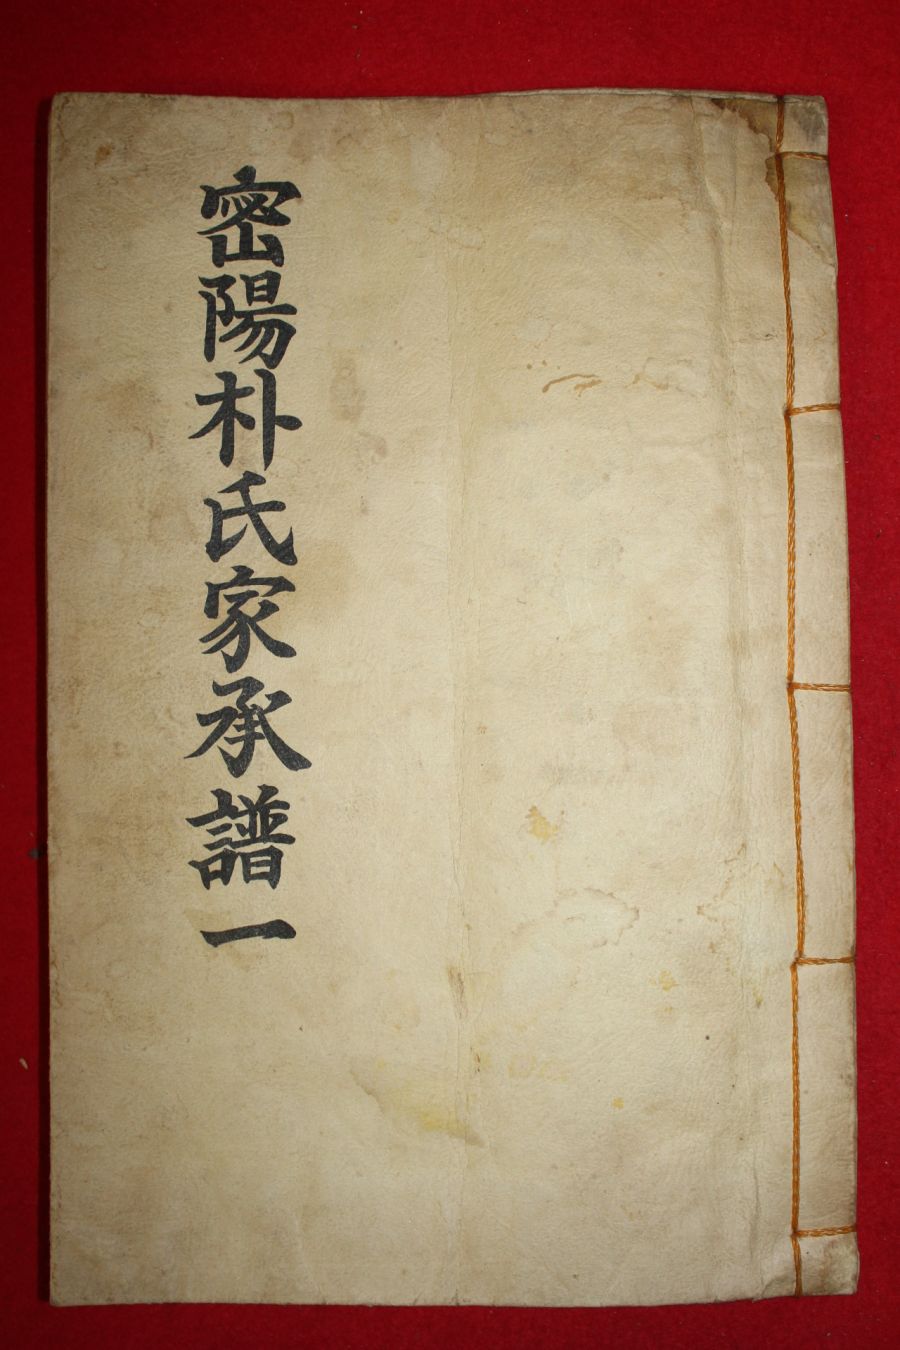 密陽朴氏家承譜一